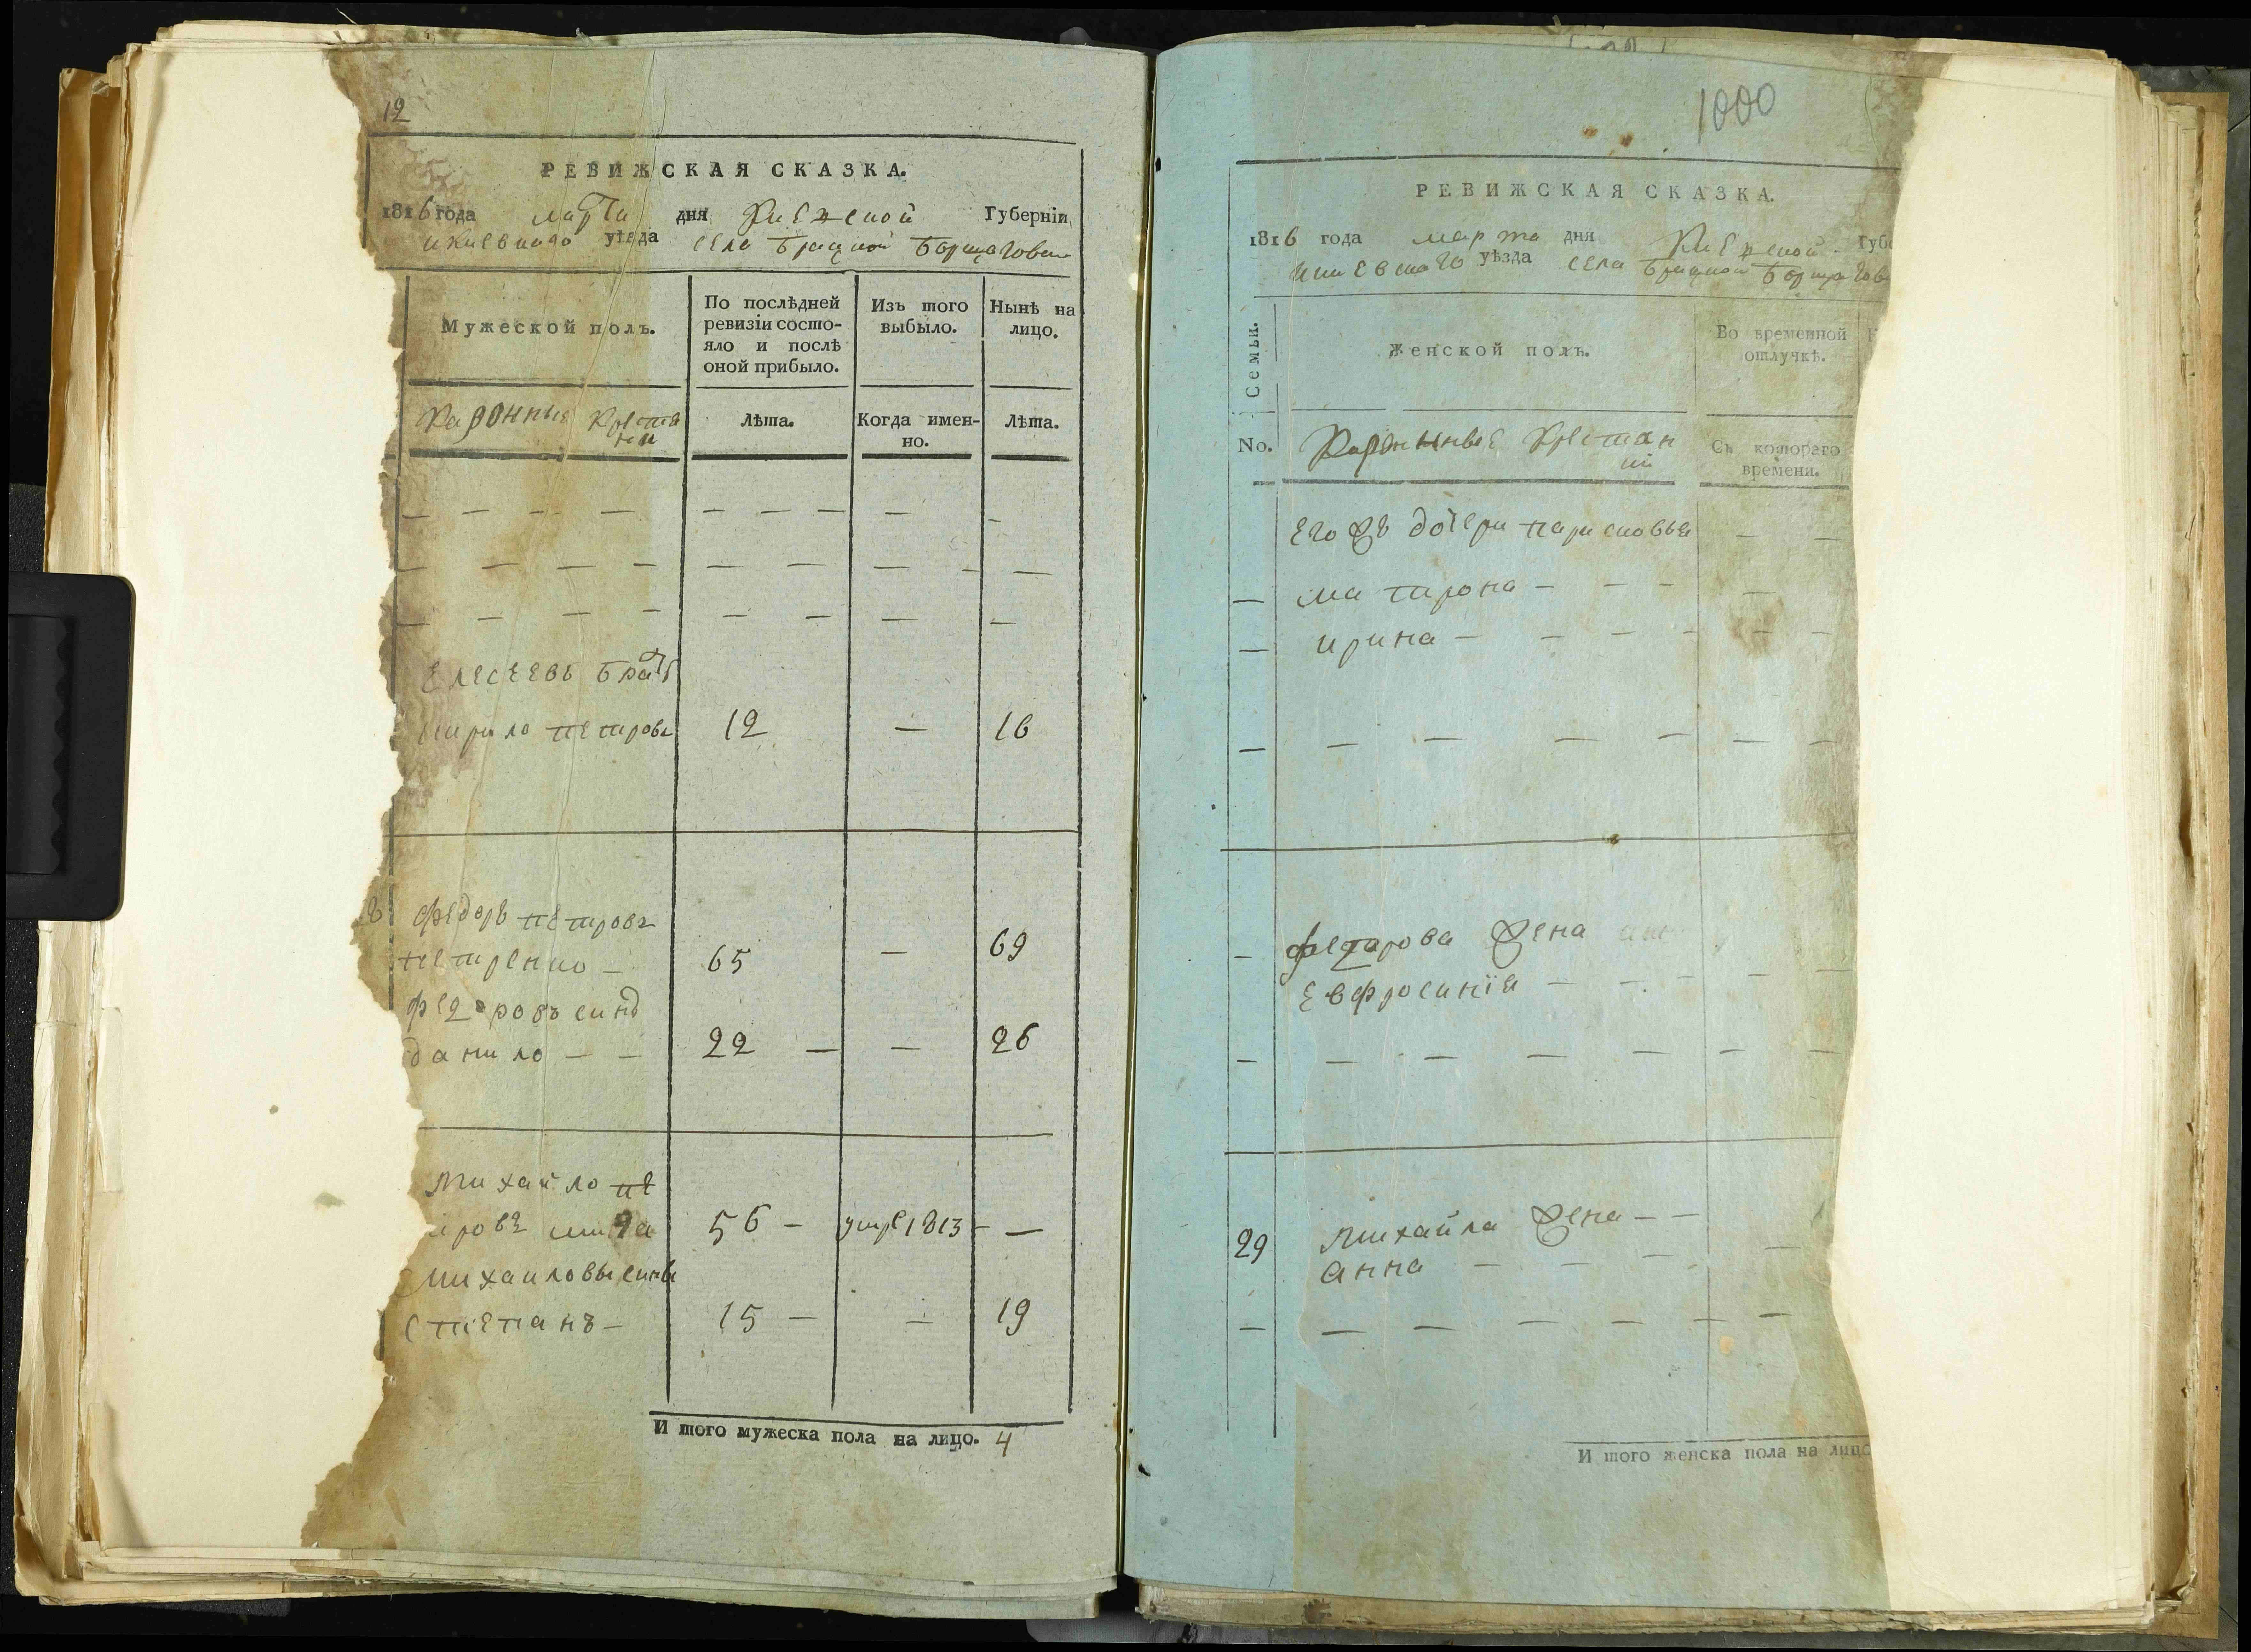 12
РЕВИЖСКАЯ СКАЗКА.
1816 года марта дня Киевской Губерніи
и Киевскаго уѣзда села Брацкой Борщаговки
Мужеской полъ.
По послѣдней ревизіи состо-
яло и послѣ
оной прибыло.
Изъ того
выбыло.
Нынѣ на
лицо.
Казонные крестяни
Лѣта.
Когда имен-
но.
Лѣта.
Елесеевъ братъ
Кирило Петровъ 12 — 16
федоръ петровъ
петренко — 65 — 69
федоровъ синъ
данило — — 22 — — 26
Михайло пе
тровъ
56 — умре 1813 — —
Михаиловы сины
Степанъ — 15 — — 19
И того мужеска пола на лицо. 4
1000
РЕВИЖСКАЯ СКАЗКА.
1816 года марта дня Киевской Губе
и Киевскаго уѣзда села Брацкой Борщагов
Семьи.
Женской полъ.
Во временной
отлучкѣ.
No.
Казонные крестяни
Съ котораго
времени.
его же дочери
матрона —
ирина —
федорова жена
Евфросинія —
29 Михайла жена — —
Анна —
И того женска пола на лицо